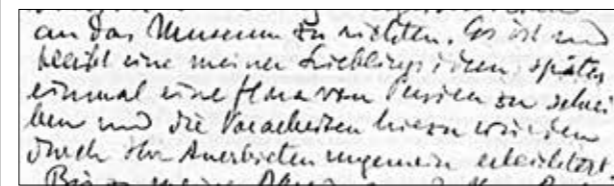 an das Museum zu richten. Es ist und
bleibt eine meiner Lieblingsideen, später
einmal eine Flora von Persien zu schrei
ben und die Vorarbeiten hierzu würden
durch Ihr Anerbieten ungemein erleichtert.
Bis zu meiner